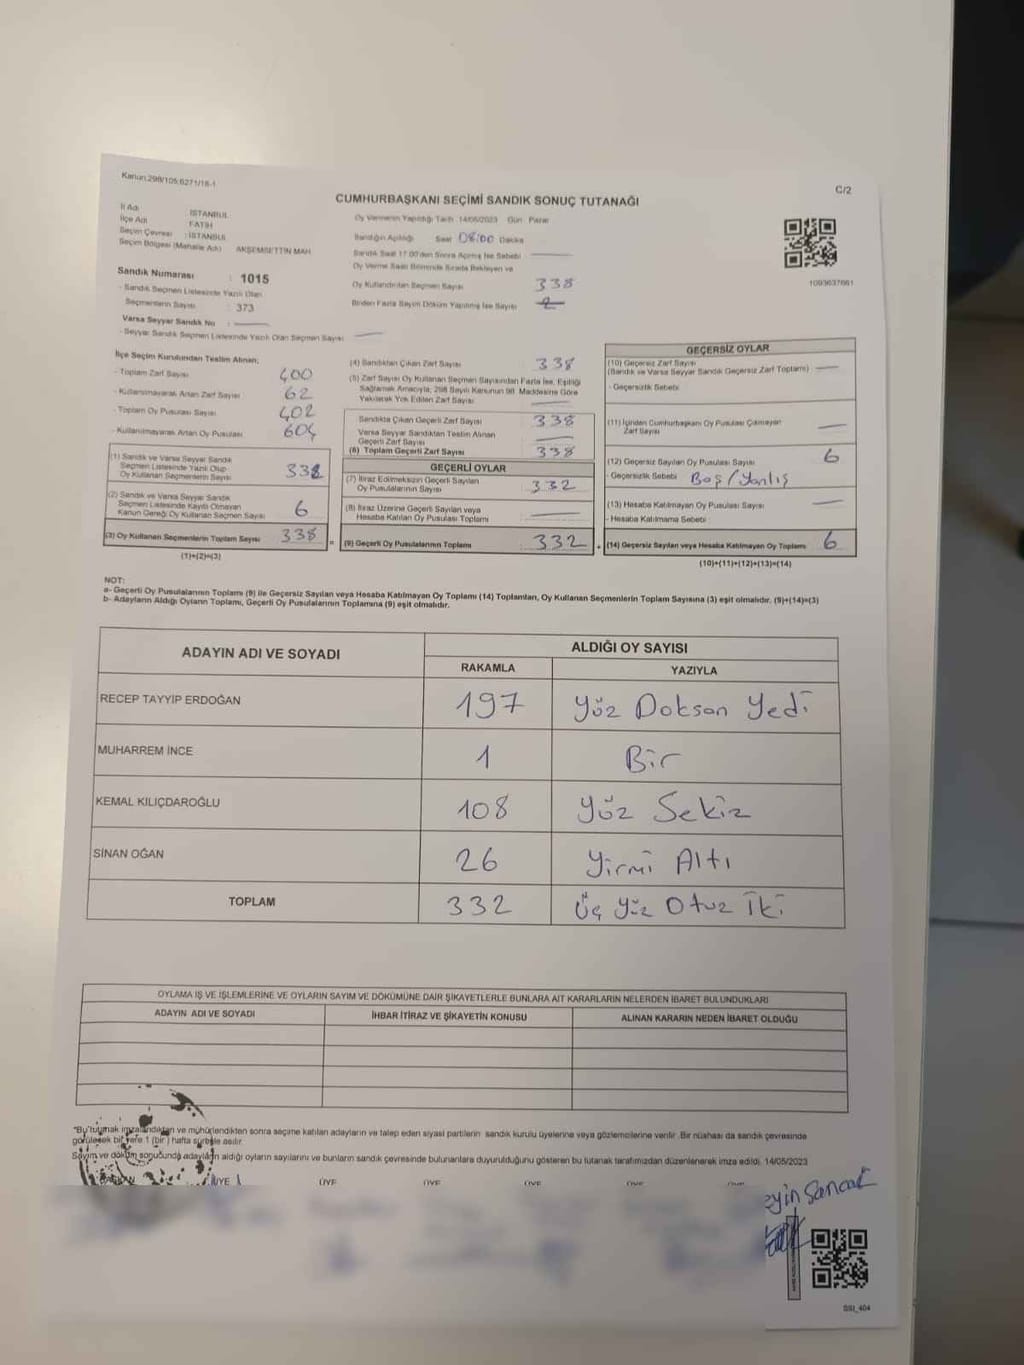 Kanun:298/105;6271/16-1
C/2
CUMHURBAŞKANI SEÇİMİ SANDIK SONUÇ TUTANAĞI
İl Adı : İSTANBUL
İlçe Adı : FATİH
Seçim Çevresi : İSTANBUL
Seçim Bölgesi (Mahalle Adı) : AKŞEMSETTİN MAH
Sandık Numarası : 1015
- Sandık Seçmen Listesinde Yazılı Olan
Seçmenlerin Sayısı : 373
Varsa Seyyar Sandık No :
- Seyyar Sandık Seçmen Listesinde Yazılı Olan Seçmen Sayısı
Oy Vermenin Yapıldığı Tarih 14/05/2023 Gün Pazar
Sandığın Açıldığı Saat 08:00 Dakika
Sandık Saat 17.00'den Sonra Açılmış İse Sebebi
Oy Verme Saati Bitiminde Sırada Bekleyen ve
Oy Kullandırılan Seçmen Sayısı 338
Birden Fazla Sayım Döküm Yapılmış İse Sayısı
1093637661
İlçe Seçim Kurulundan Teslim Alınan;
- Toplam Zarf Sayısı 400
- Kullanılmayarak Artan Zarf Sayısı 62
- Toplam Oy Pusulası Sayısı 402
- Kullanılmayarak Artan Oy Pusulası 604
(1) Sandık ve Varsa Seyyar Sandık
Seçmen Listesinde Yazılı Olup
Oy Kullanan Seçmenlerin Sayısı
(2) Sandık ve Varsa Seyyar Sandık
Seçmen Listesinde Kayıtlı Olmayan
Kanun Gereği Oy Kullanan Seçmen Sayısı 6
(3) Oy Kullanan Seçmenlerin Toplam Sayısı 338
(1)+(2)=(3)
(4) Sandıktan Çıkan Zarf Sayısı 338
(5) Zarf Sayısı Oy Kullanan Seçmen Sayısından Fazla İse, Eşitliği
Sağlamak Amacıyla, 298 Sayılı Kanunun 98. Maddesine Göre
Yakılarak Yok Edilen Zarf Sayısı
Sandıkta Çıkan Geçerli Zarf Sayısı 338
Varsa Seyyar Sandıktan Teslim Alınan
Geçerli Zarf Sayısı
(6) Toplam Geçerli Zarf Sayısı 338
GEÇERLİ OYLAR
(7) İtiraz Edilmeksizin Geçerli Sayılan
Oy Pusulalarının Sayısı 332
(8) İtiraz Üzerine Geçerli Sayılan veya
Hesaba Katılan Oy Pusulası Toplamı
= (9) Geçerli Oy Pusulalarının Toplamı 332
GEÇERSİZ OYLAR
(10) Geçersiz Zarf Sayısı
(Sandık ve Varsa Seyyar Sandık Geçersiz Zarf Toplamı)
- Geçersizlik Sebebi
(11) İçinden Cumhurbaşkanı Oy Pusulası Çıkmayan
Zarf Sayısı
(12) Geçersiz Sayılan Oy Pusulası Sayısı 6
- Geçersizlik Sebebi Boş/Yanlış
(13) Hesaba Katılmayan Oy Pusulası Sayısı
- Hesaba Katılmama Sebebi
+ (14) Geçersiz Sayılan veya Hesaba Katılmayan Oy Toplamı 6
(10)+(11)+(12)+(13)=(14)
NOT:
a- Geçerli Oy Pusulalarının Toplamı (9) ile Geçersiz Sayılan veya Hesaba Katılmayan Oy Toplamı (14) Toplamları, Oy Kullanan Seçmenlerin Toplam Sayısına (3) eşit olmalıdır. (9)+(14)=(3)
b- Adayların Aldığı Oyların Toplamı, Geçerli Oy Pusulalarının Toplamına (9) eşit olmalıdır.
ADAYIN ADI VE SOYADI ALDIĞI OY SAYISI
RAKAMLA YAZIYLA
RECEP TAYYİP ERDOĞAN 197 Yüz Doksan Yedi
MUHARREM İNCE 1 Bir
KEMAL KILIÇDAROĞLU 108 Yüz Sekiz
SİNAN OĞAN 26 Yirmi Altı
TOPLAM 332 Üç Yüz Otuz İki
OYLAMA İŞ VE İŞLEMLERİNE VE OYLARIN SAYIM VE DÖKÜMÜNE DAİR ŞİKAYETLERLE BUNLARA AİT KARARLARIN NELERDEN İBARET BULUNDUKLARI
ADAYIN ADI VE SOYADI İHBAR İTİRAZ VE ŞİKAYETİN KONUSU ALINAN KARARIN NEDEN İBARET OLDUĞU
"Bu tutanak imzalandıktan ve mühürlendikten sonra seçime katılan adayların ve talep eden siyasi partilerin sandık kurulu üyelerine veya gözlemcilerine verilir. Bir nüshası da sandık çevresinde
görülecek bir yere 1 (bir) hafta süreyle asılır.
Sayım ve döküm sonucunda adayların aldığı oyların sayılarını ve bunların sandık çevresinde bulunanlara duyurulduğunu gösteren bu tutanak tarafımızdan düzenlenerek imza edildi. 14/05/2023
BAŞKAN ÜYE ÜYE ÜYE ÜYE ÜYE ÜYE
eyin Sancak
SSI_404